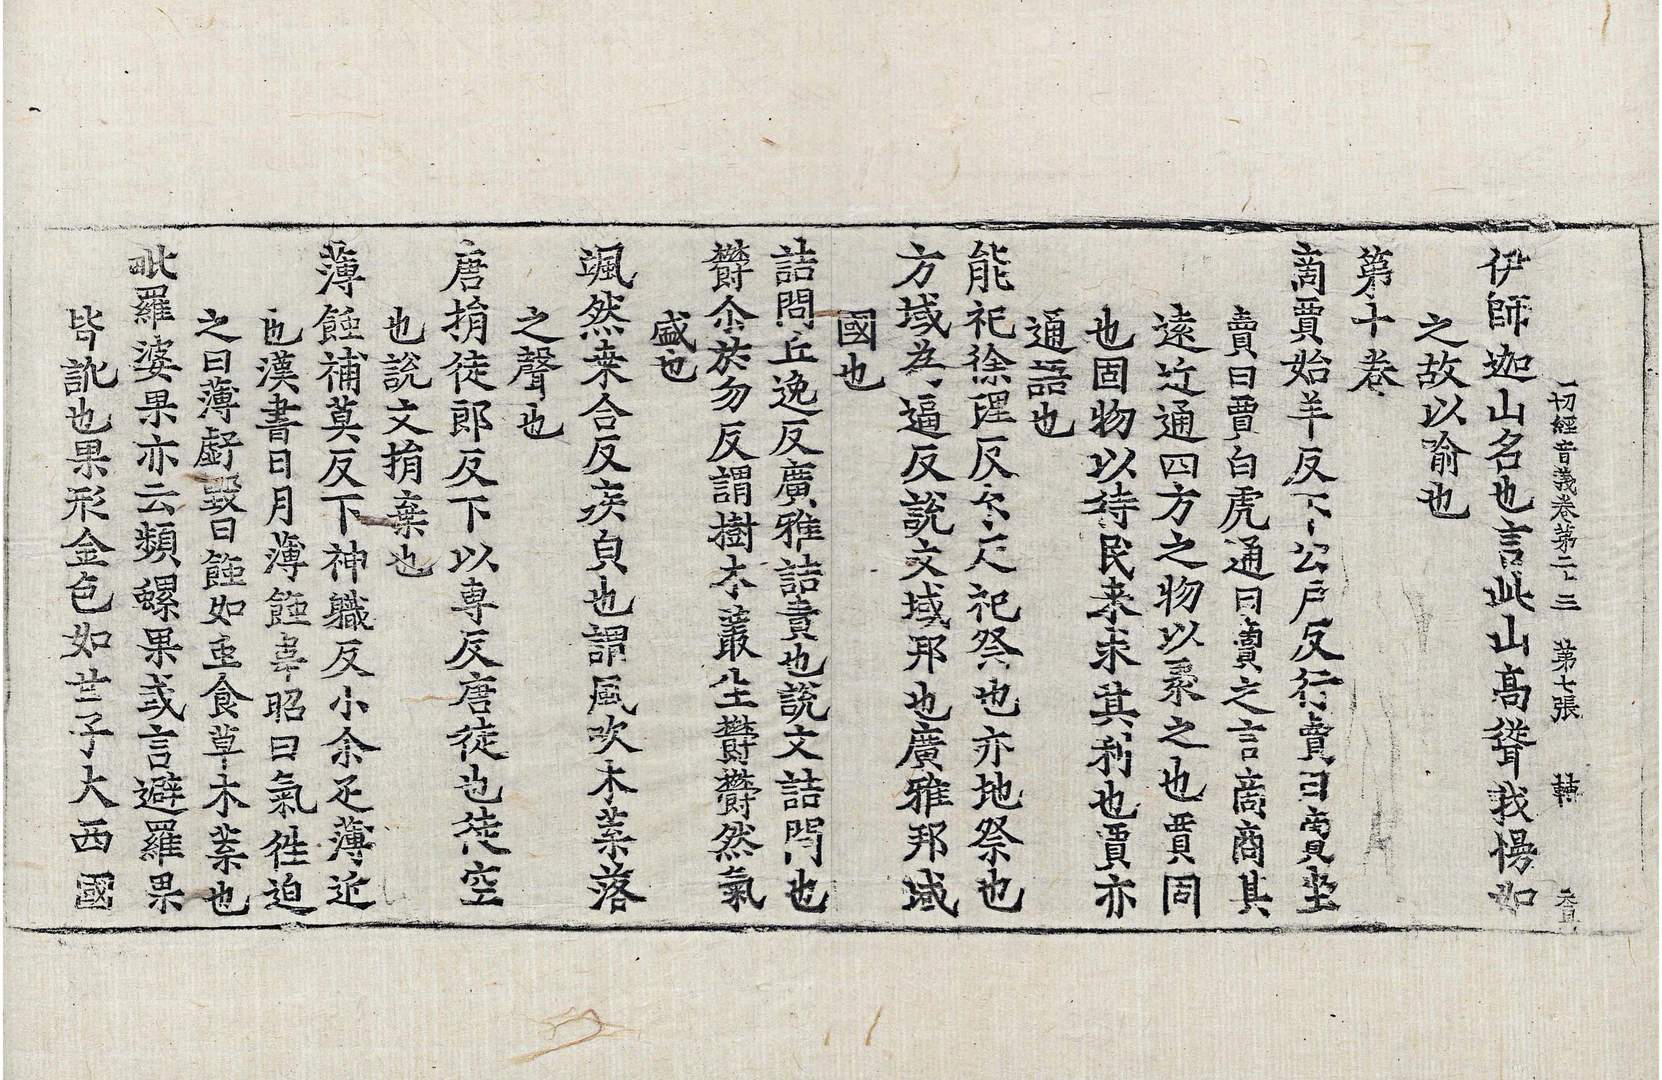 一切經音義卷第二十三 第七張 轉
伊師迦山名也言此山高聳我慢如
之故以喻也
第十卷
啇賈始羊反下公戶反行賣曰啇坐
賣曰賈白虎通曰賣之言啇啇其
遠近通四方之物以聚之也賈固
也固物以待民来求其利也賈亦
通語也
能祀徐理反尒疋祀祭也亦地祭也
方域為逼反說文域邦也廣雅邦域
國也
詰問丘逸反廣雅詰責也說文詰問也
欝尒於勿反謂樹木叢生欝欝然氣
盛也
颯然桒合反疾皃也謂風吹木葉落
之聲也
唐捐徒郎反下以專反唐徒也徒空
也說文捐棄也
薄蝕補莫反下神職反小尒疋薄近
也漢書日月薄蝕韋昭曰氣往迫
之曰薄虧毀曰蝕如䖝食草木葉也
毗羅婆果亦云頻螺果或言避羅果
皆訛也果形金色如世子大西國